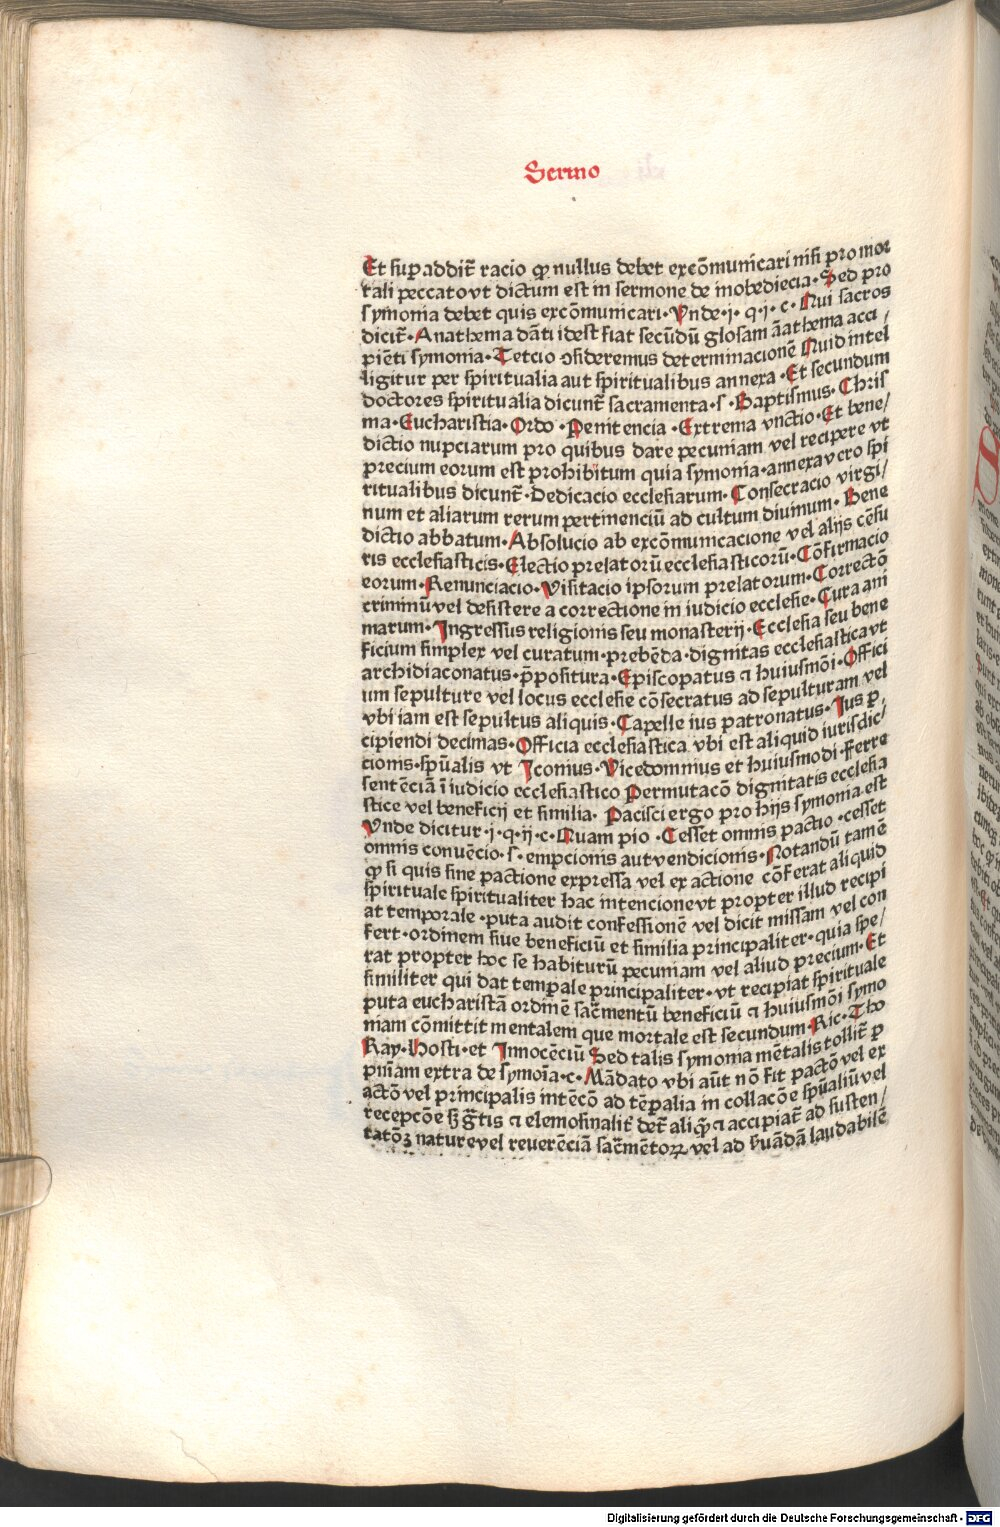 Sermo
Et suꝑaddit̃ racio ꝙ nullus debet excõmunicari nisi pro mor
tali peccato vt dictum est in sermone de inobediẽcia· Sed pro
symonia debet quis excõmunicari· Vnde·i·q·i·c·Qui sacros
dicit̃· Anathema dãti idest fiat secũdũ glosam ãathema acci/
piẽti symonia· Tetcio ↄsideremus determinacionẽ Quid intel
ligitur per spiritualia aut spiritualibus annexa· Et secundum
doctores spiritualia dicunt̃ sacramenta·s·Baptismus· Chris
ma· Eucharistia· Ordo· Penitencia· Extrema vnctio· Et bene/
dictio nupciarum pro quibus dare pecuniam vel recipere vt
precium eorum est prohibitum quia symonia·annexa vero spi
ritualibus dicunt̃· Dedicacio ecclesiarum· Consecracio virgi/
num et aliarum rerum pertinenciũ ad cultum diuinum· Bene
dictio abbatum· Absolucio ab excõmunicacione vel alijs cẽsu
ris ecclesiasticis· Electio prelatorũ ecclesiasticorũ· Cõfirmacio
eorum· Renunciacio· Visitacio ipsorum prelatorum· Correctõ
criminũ vel desistere a correctione in iudicio ecclesie· Cura ani
marum· Ingressus religionis seu monasterij· Ecclesia seu bene
ficium simplex vel curatum·prebẽda·dignitas ecclesiastica vt
archidiaconatus·p̃positura· Episcopatus ⁊ huiusmõi· Offici
um sepulture vel locus ecclesie cõsecratus ad sepulturam vel
vbi iam est sepultus aliquis· Capelle ius patronatus· Ius ꝑ
cipiendi decimas· Officia ecclesiastica vbi est aliquid iurisdic/
cionis·sp̃ualis vt Iconius· Vicedomnius et huiusmodi· Ferre
sentẽciã ĩ iudicio ecclesiastico Permutacõ dignitatis ecclesia
stice vel beneficij et similia· Pacisci ergo pro hijs symonia est
Vnde dicitur·i·q·ij·c·Quam pio· Cesset omnis pactio·cesset
omnis conuẽcio·s·empcionis aut vendicionis· Notandũ tamẽ
ꝙ si quis sine pactione expressa vel ex actione cõferat aliquid
spirituale spiritualiter hac intencione vt propter illud recipi
at temporale·puta audit confessionẽ vel dicit missam vel con
fert·ordinem siue beneficiũ et similia principaliter·quia spe/
rat propter hoc se habiturũ pecuniam vel aliud precium· Et
similiter qui dat temꝑale principaliter·vt recipiat spirituale
puta eucharistã ordinẽ sac̃mentũ beneficiũ ⁊ huiusmõi symo
niam cõmittit mentalem que mortale est secundum· Ric· Tho
Ray· Hosti·et Innocẽciũ Sed talis symonia mẽtalis tollit̃ ꝑ
pñiam extra de symoĩa·c·Mãdato vbi aũt nõ fit pactõ vel ex
actõ vel principalis intẽcõ ad tẽꝑalia in collacõe sp̃ualiũ vel
recepcõe ꝫ g̃tis ⁊ elemosinalit̃ det̃ aliꝗ̃ ⁊ accipiat̃ ad susten/
tatõꝫ nature vel reuerẽciã sac̃mẽtoꝝ vel ad ẜuãdã laudabilẽ
Digitalisierung gefördert durch die Deutsche Forschungsgemeinschaft - DFG